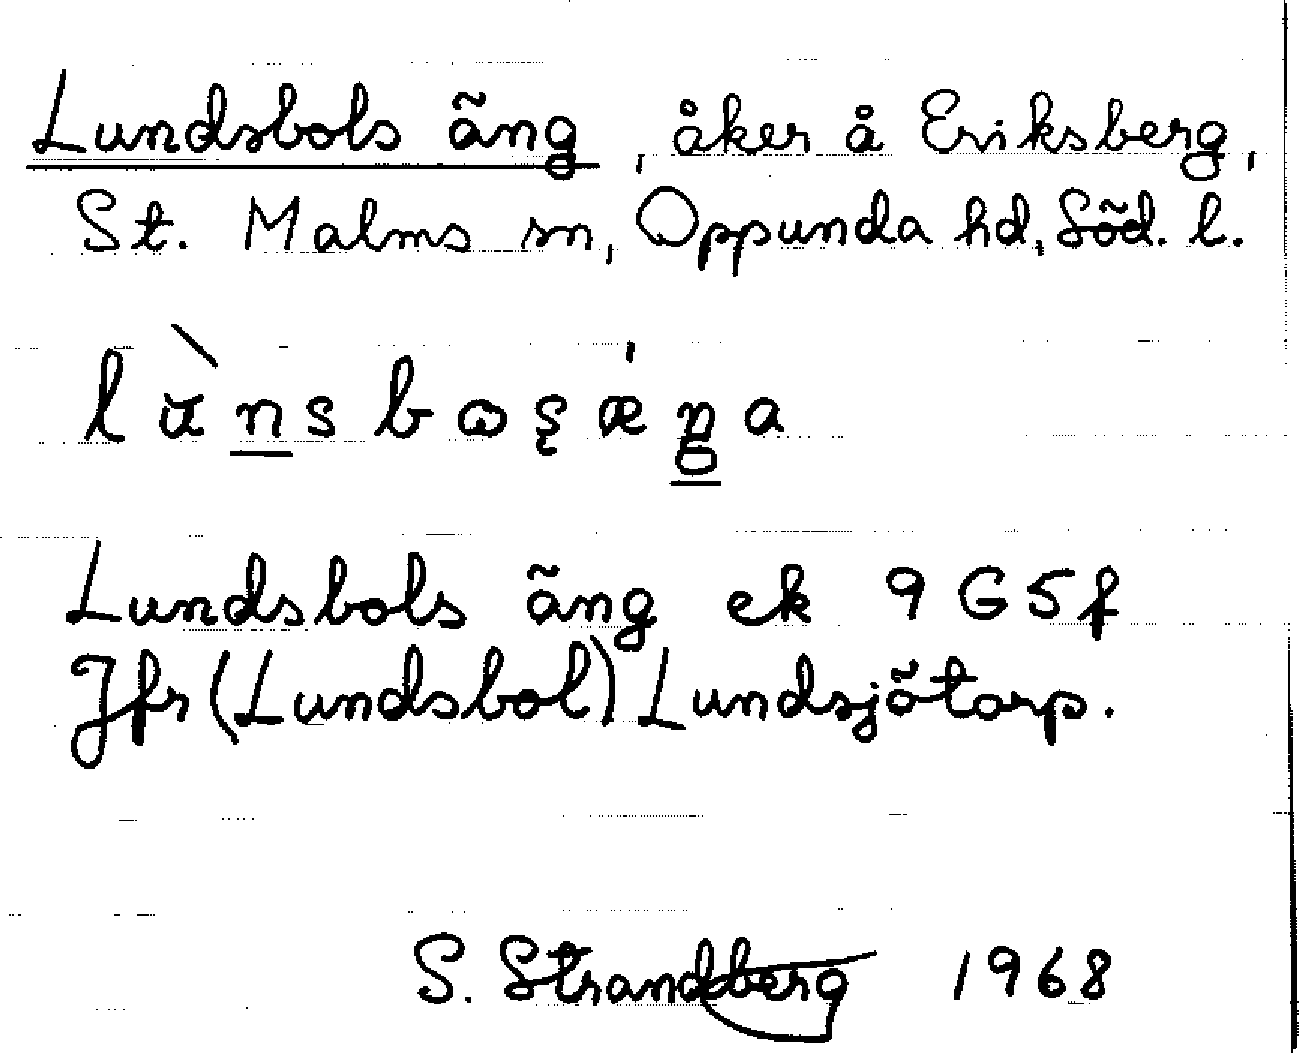 Lundsbols äng, åker å Eriksberg,
St. Malms sn, Oppunda hd, Söd. l.
Lundsbols äng ek 9G5f
Jfr (Lundsbol) Lundsjötorp.
S. Strandberg 1968